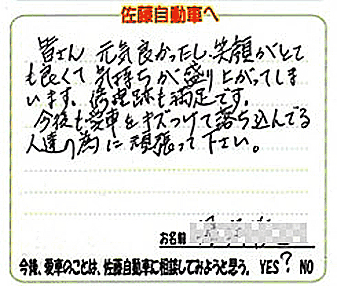 佐藤自動車へ
皆さん 元気良かったし、笑顔がとて
も良くて気持ちが盛り上がってしま
います。修理跡も満足です。
今後も愛車をキズつけて落ち込んでる
人達の為に頑張って下さい。
お名前
今後、愛車のことは、佐藤自動車に相談してみようと思う。 YES? NO